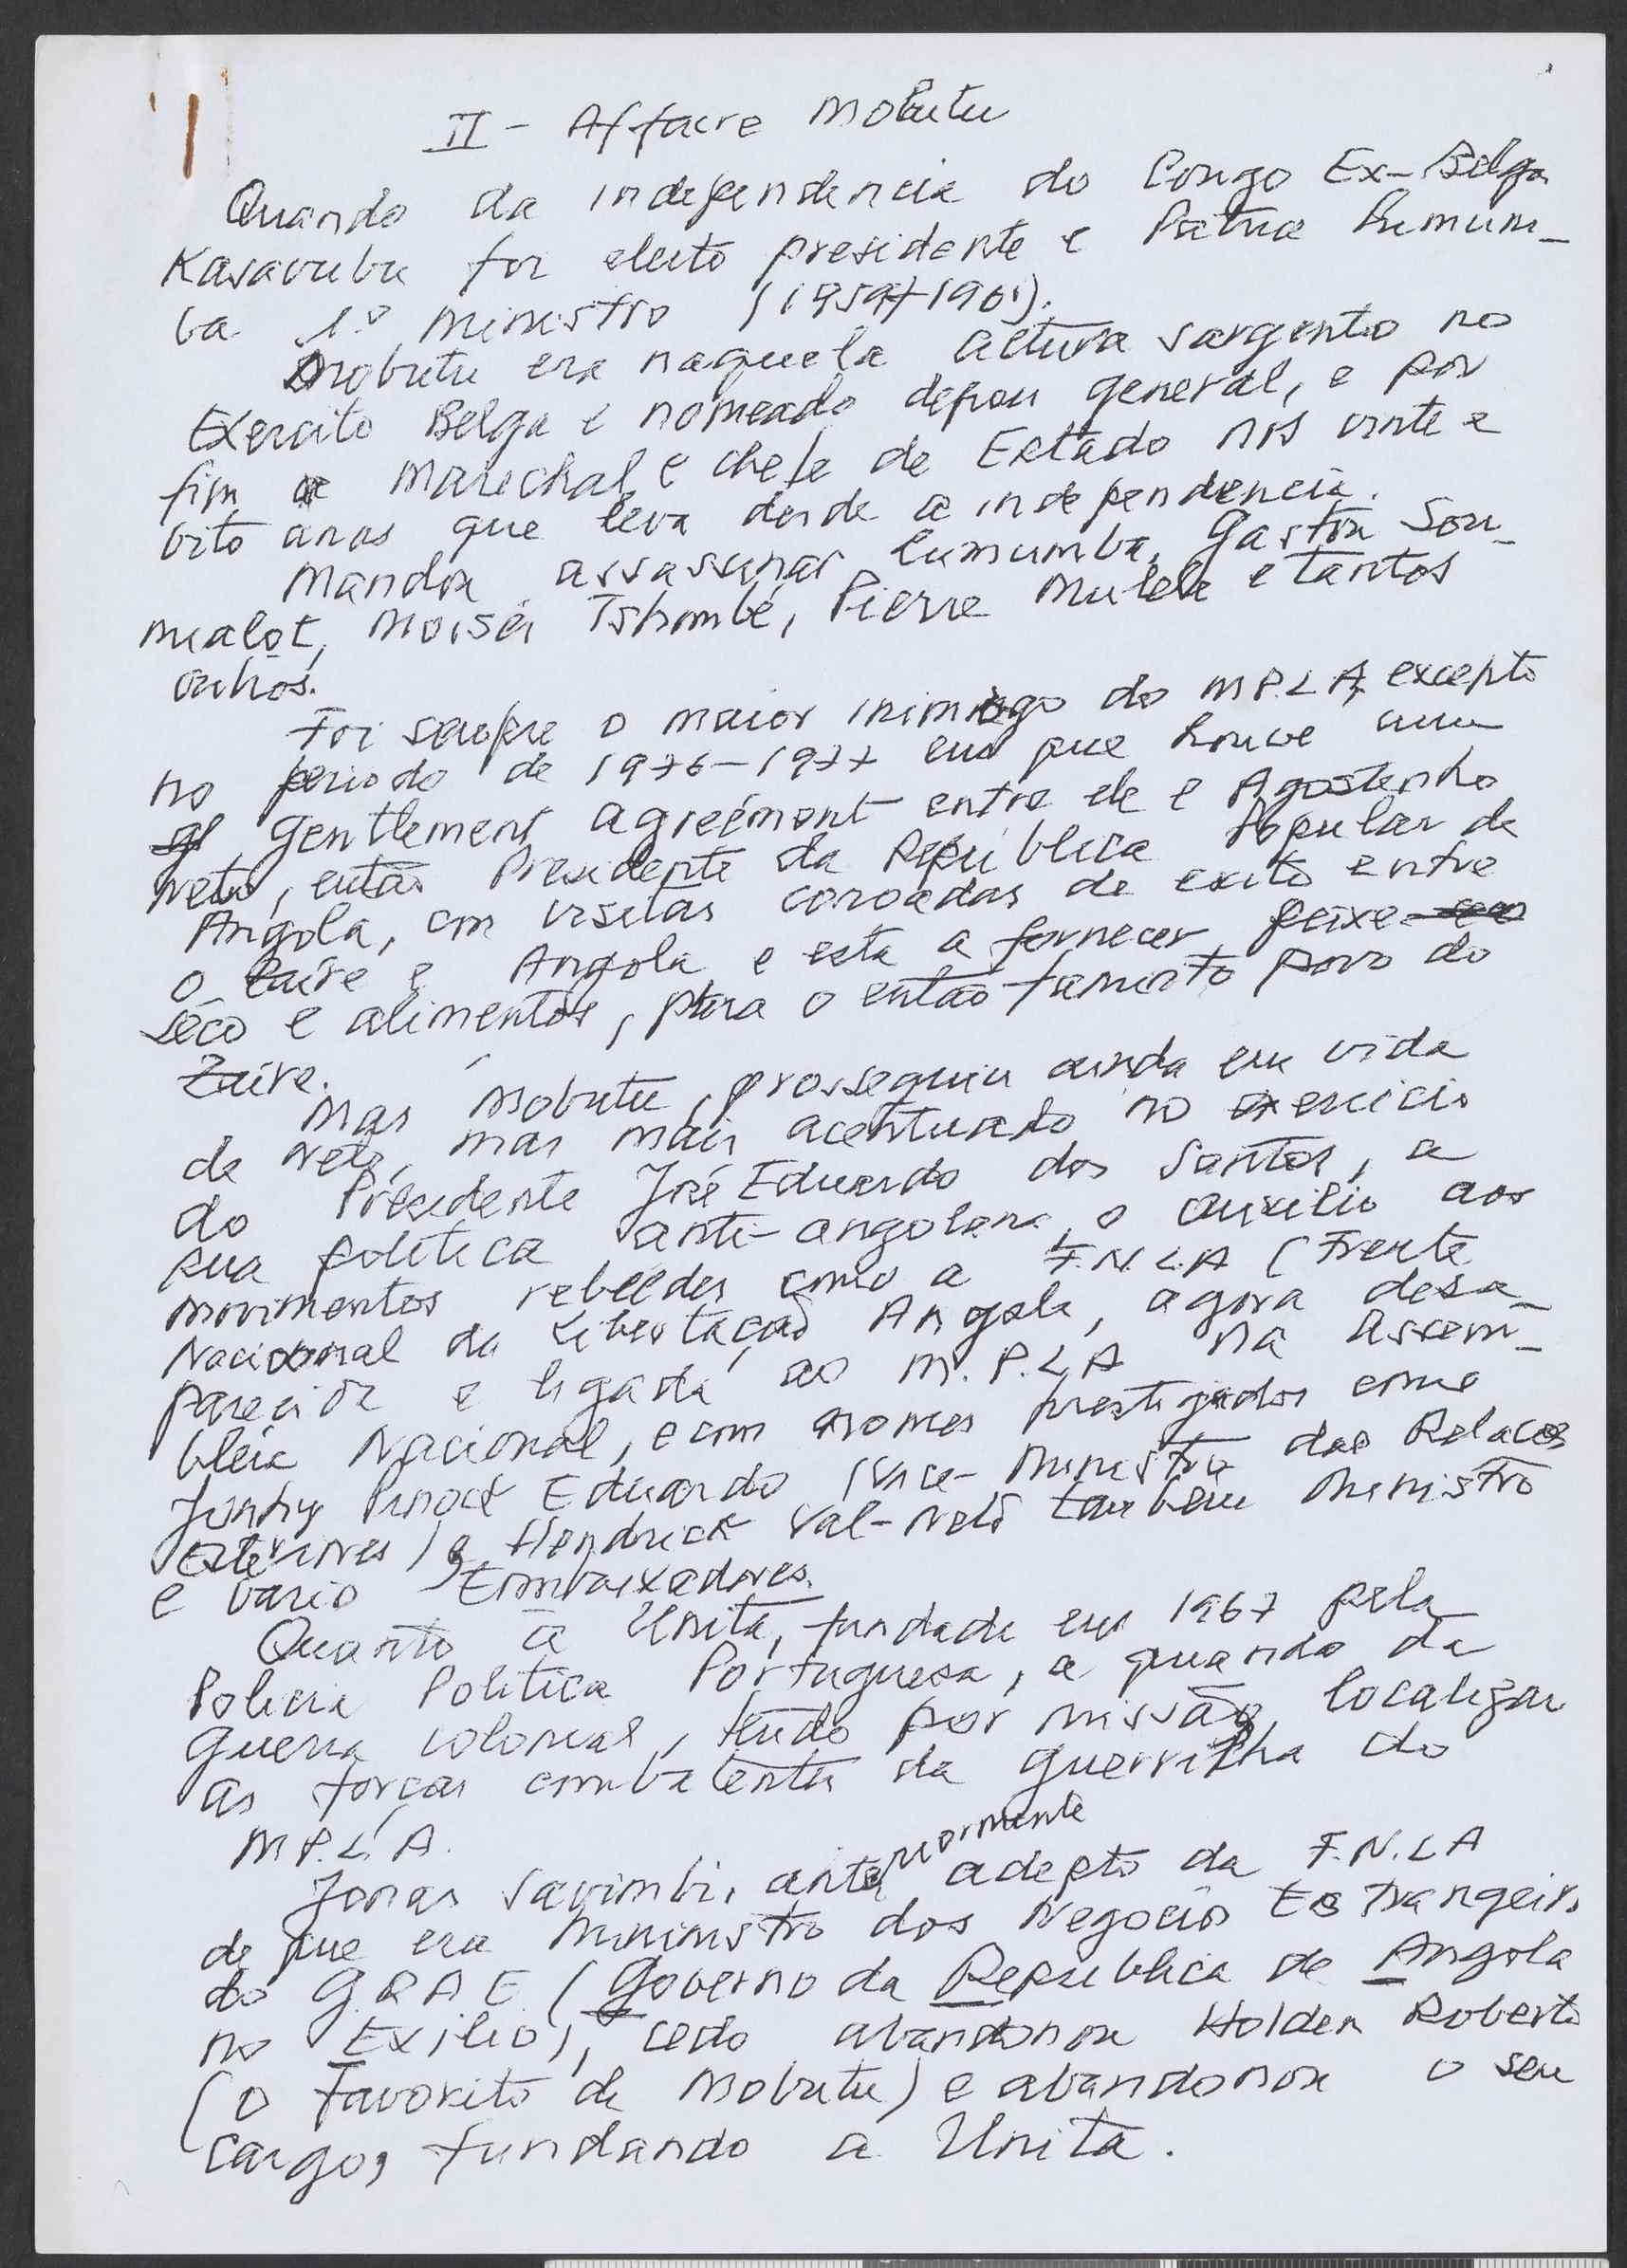 II - Affaire Mobutu
Quando da independencia do Congo Ex-Belga
Kasavubu foi eleito presidente e Patric Lumum-
ba 1º ministro (1959+1961).
Mobutu era naquela altura sargento no
Exercito Belga e nomeado depois general, e por
fim a Marechal e chefe de Estado nos vinte e
oito anos que leva desde a independencia.
Mandou assassinar Lumumba, Gaston Sou-
mialot, Moisés Tshombé, Pierre Mulele e tantos
outros.
Foi sempre o maior inimigo do MP.L.A, excepto
no periodo de 1976-1977 em que houve um
gentlement agreémont entre ele e Agostinho
Neto, então Presidente da República Popular de
Angola, com visitas coroadas de exito entre
o Zaire e Angola e esta a fornecer peixe
sêco e alimentos, para o então faminto povo do
Zaire.
Mas Mobutu, prosseguiu ainda em vida
de Neto, mas mais acentuado no exercicio
do Presidente José Eduardo dos Santos, a
sua politica anti-angolana, o auxilio aos
movimentos rebeldes como a F.N.L.A (Frente
Nacional da Libertação Angola, agora desa-
parecida e ligada ao M.P.L.A na Assem-
bleia Nacional, e com nomes prestigiados como
Johnny Pinock Eduardo (Vice-Ministro das Relacões
Exteriores) e Hendrick Val-Neto também Ministro
e vario Embaixadores.
Quanto à Unita, fundada em 1967 pela
Policia Politica Portuguesa, a quando da
guerra colonial, tendo por missão localizar
as forças combatentes da guerrilha do
M.P.L.A.
Jonas Savimbi, anteriormente adepto da F.N.L.A
de que era Mininistro dos Negocios Estrangeiros
do G.R.A.E. (Governo da Republica de Angola
no Exilio), cedo abandonou Holden Roberto
(o favorito de Mobutu) e abandonou o seu
cargo, fundando a Unita.